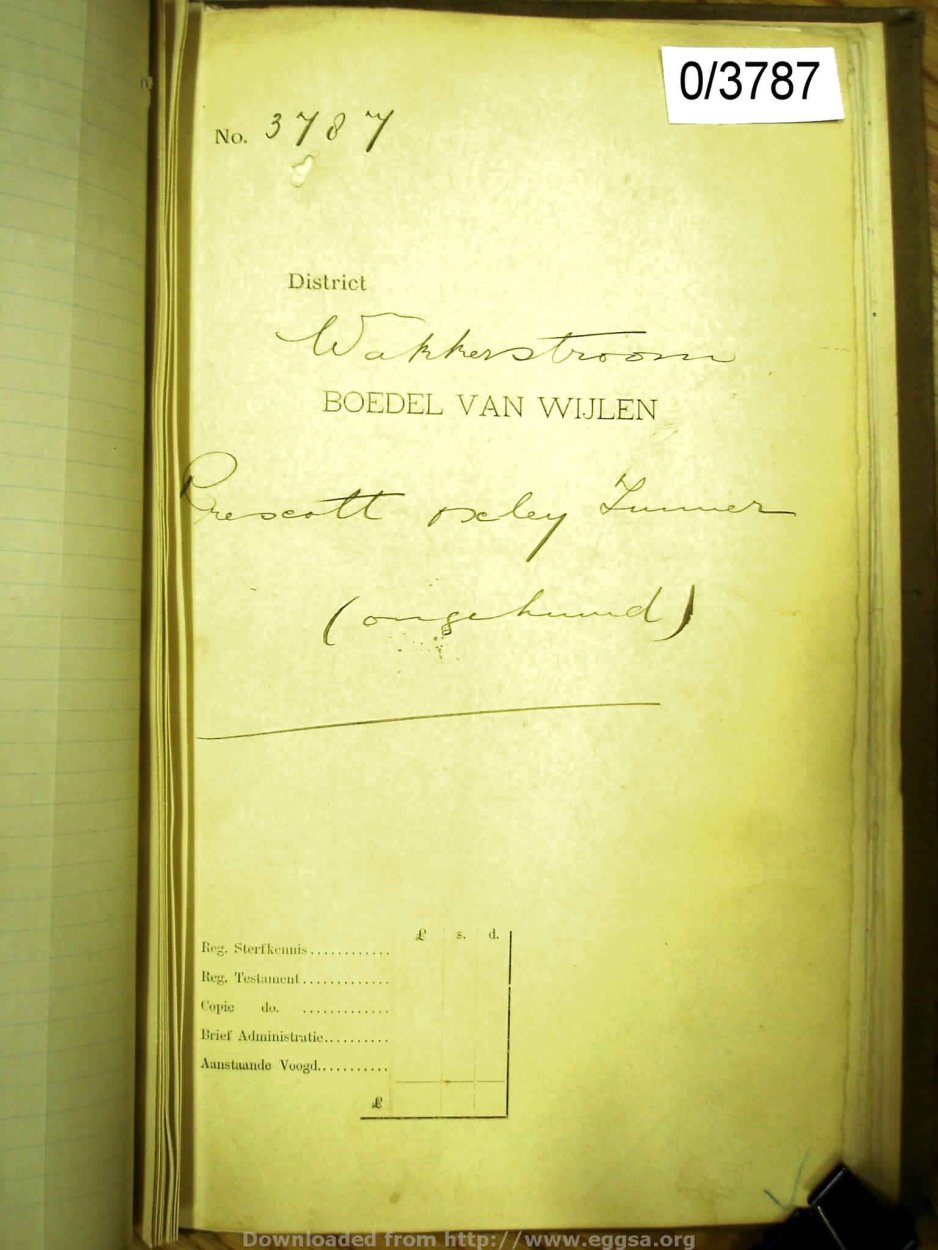 0/3787
No. 3787
District
Wakkerstroom
BOEDEL VAN WIJLEN
Prescott oxley Tunner
(ongehuwd)
£ s. d.
Reg. Sterfkennis............
Reg. Testament.............
Copie do. .............
Brief Administratie..........
Aanstaande Voogd...........
£
Downloaded from http://www.eggsa.org